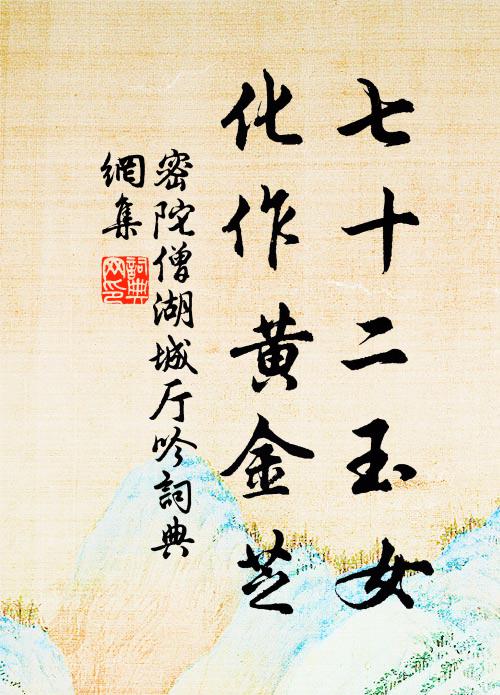 七十二玉女
化作黄金芝
密陀僧湖城厅吟詞典
網集
詞典
网印